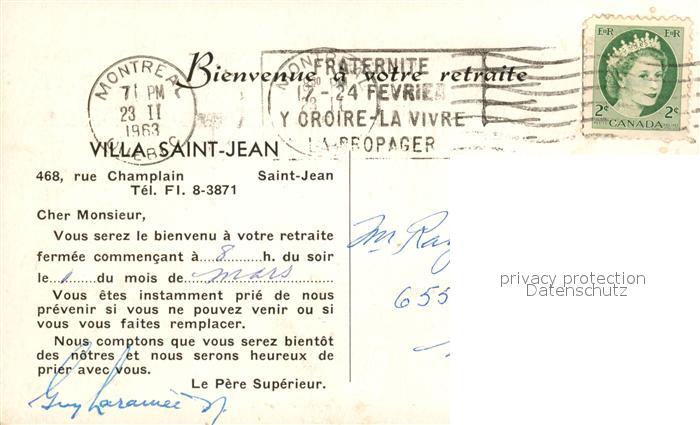 Bienvenue à votre retraite
MONTREAL
71 PM
23 II
1963
FRATERNITE
17-24 FEVRIER
Y CROIRE-LA VIVRE
LA PROPAGER
EIIR EIIR
2¢ CANADA 2¢
VILLA SAINT-JEAN
468, rue Champlain Saint-Jean
Tél. FI. 8-3871
Cher Monsieur,
Vous serez le bienvenu à votre retraite
fermée commençant à....8........h. du soir
le..1.....du mois de....mars..........
Vous êtes instamment prié de nous
prévenir si vous ne pouvez venir ou si
vous vous faites remplacer.
Nous comptons que vous serez bientôt
des nôtres et nous serons heureux de
prier avec vous.
Le Père Supérieur.
Guy Laramée sj
M. Ray
655
privacy protection
Datenschutz